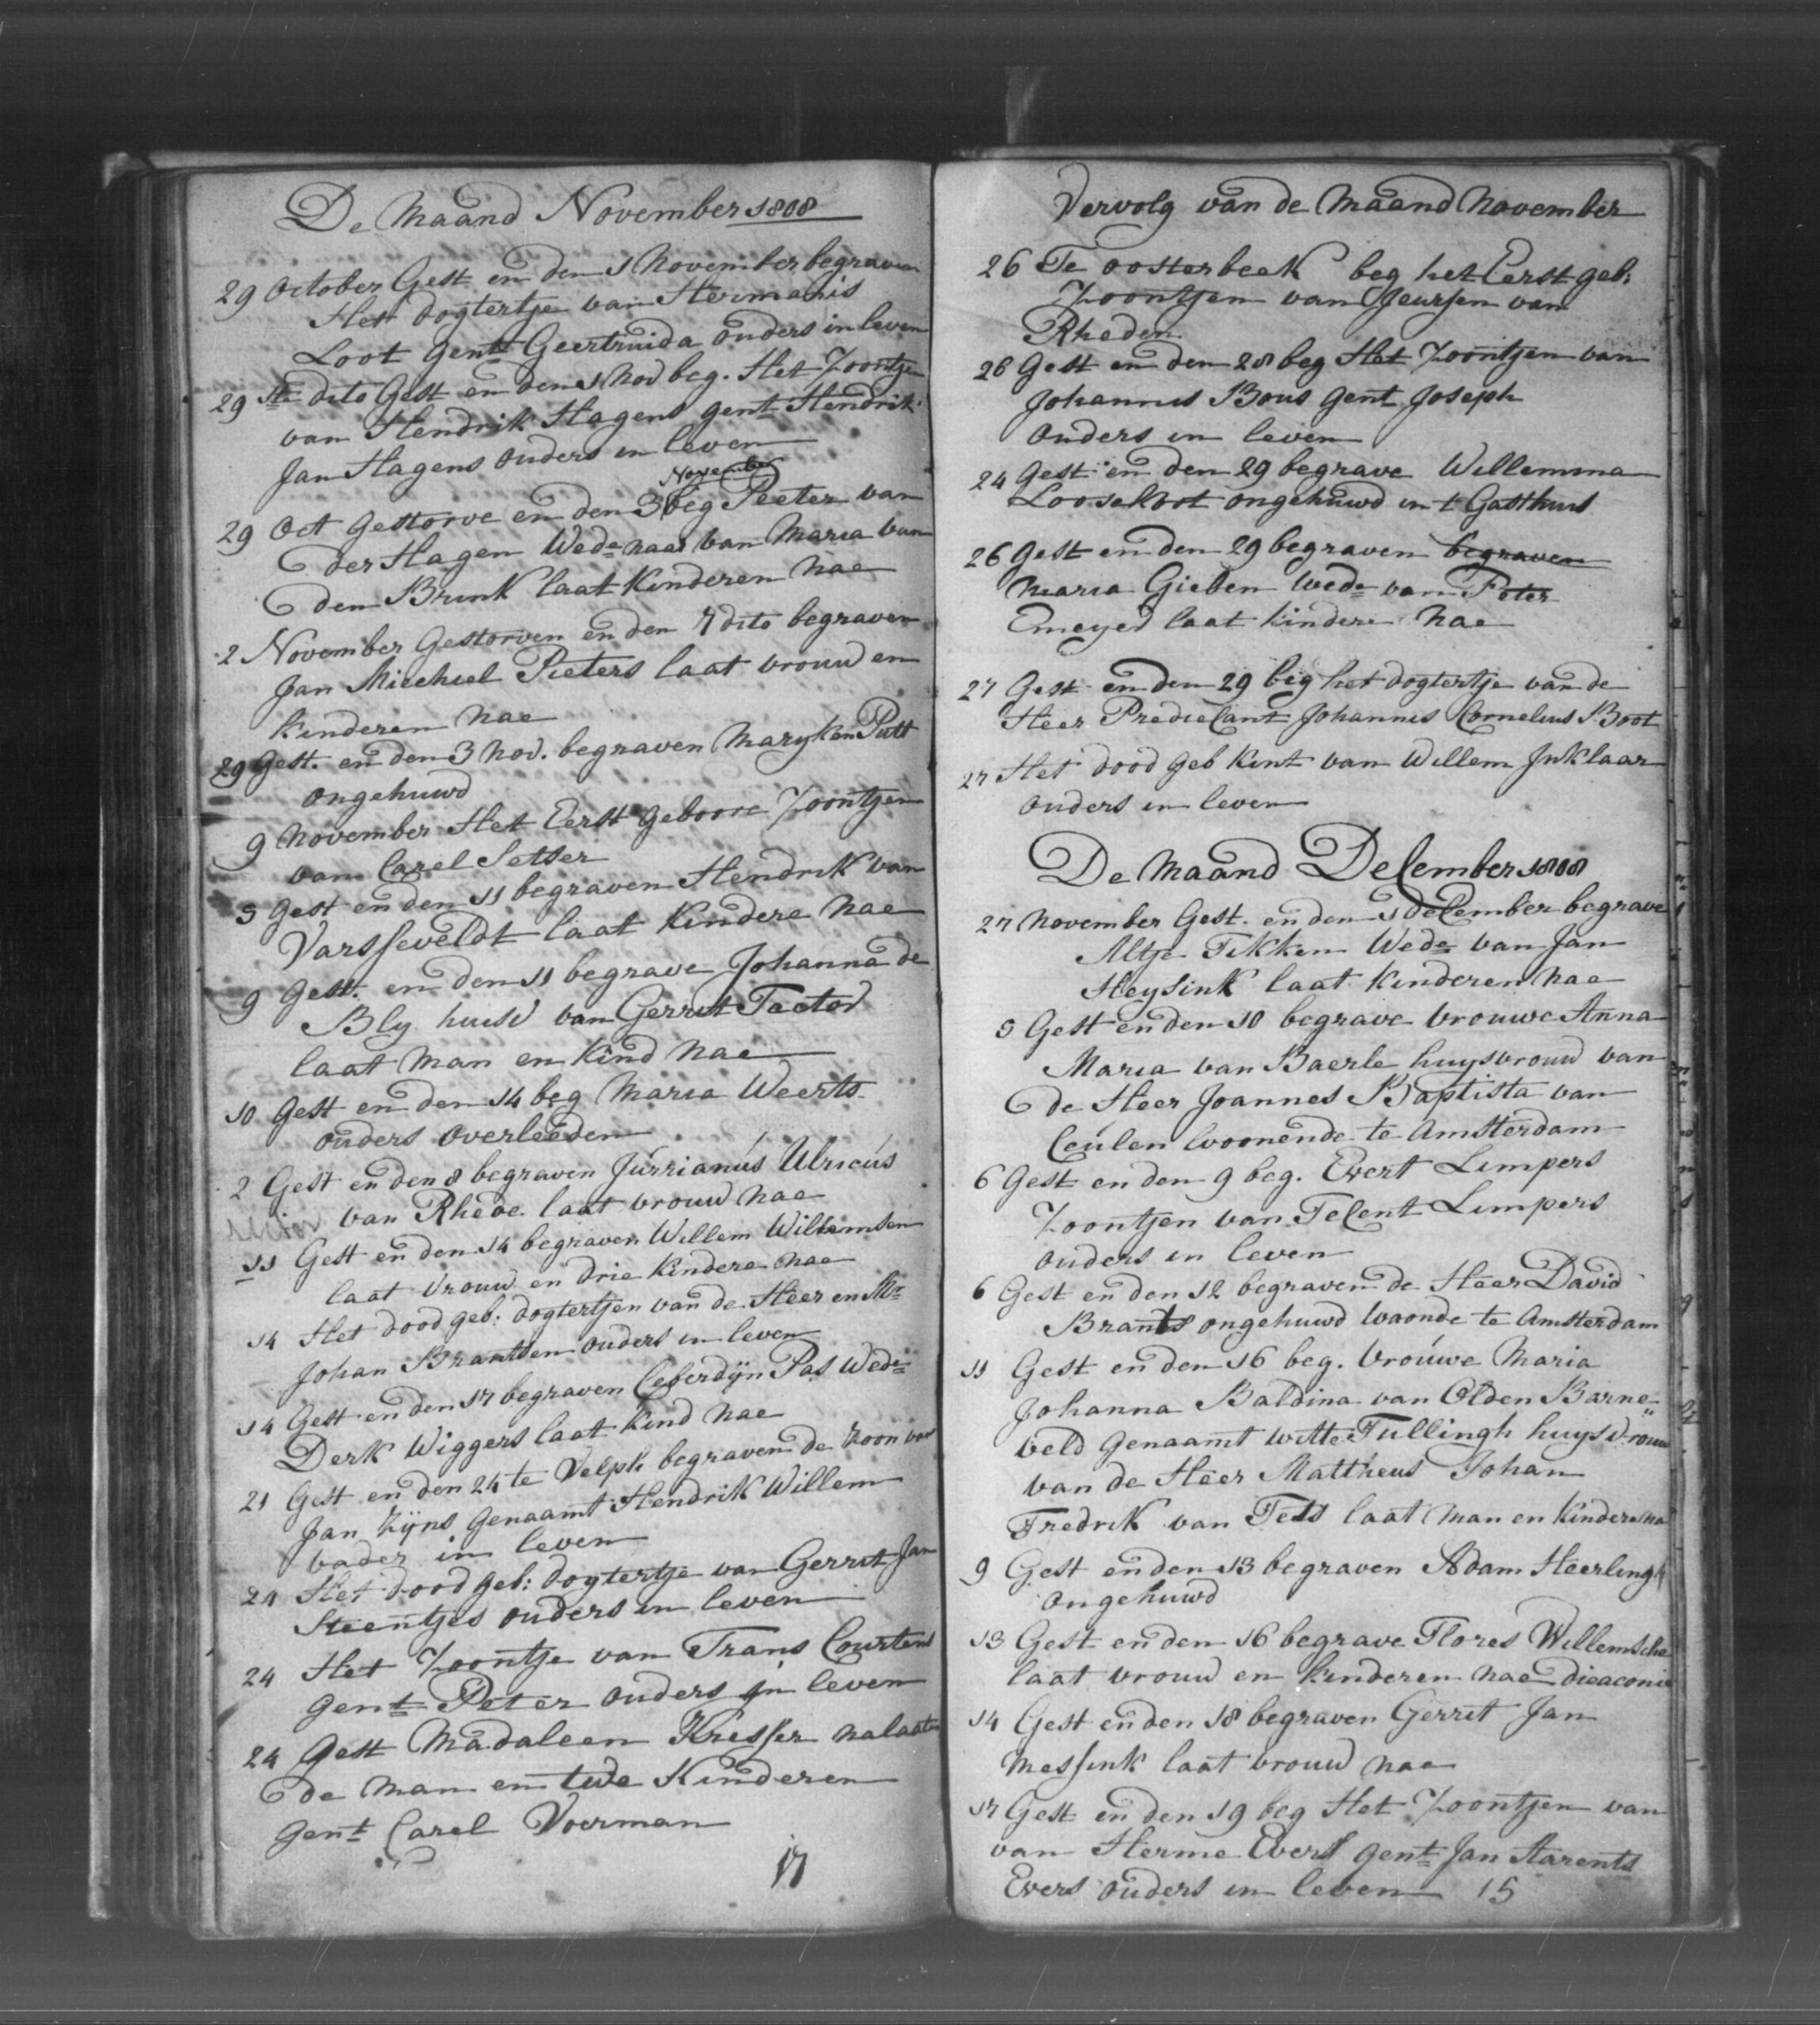 De Maand November 1808
29 October Gest en den 1 November begraven
Het dogtertje van Hermanis
Loot gent Geertruida ouders in leven
29 ste dito Gest en den 1 Nov beg. Het Zoontjen
van Hendrik Hagens gent Hendrik
Jan Hagens ouders in leven
November
29 Oct gestorve en den 3 beg Peeter van
der Hagen Wede naar van Maria van
den Brink laat kinderen nae
2 November Gestorven en den 7 dito begraven
Jan Miechiel Pieters laat vrouw en
kinderen nae
29 Gest. en den 3 Nov. begraven Maryken Putt
ongehuwd
9 November Het Eerst geboore Zoontjen
van Carel Setser
5 Gest en den 11 begraven Hendrik van
Varsseveldt laat Kindere nae
9 Gest. en den 11 begrave Johanna de
Bly huisv van Gerrit
laat man en Kind nae
10 Gest en den 14 beg Maria Weerts
ouders overleeden
2 Gest en den 8 begraven Júrrianús Ulricús
van Rhede laat vrouw nae
11 Gest en den 14 begraven Willem Willemsen
laat vrouw en drie Kindere nae
14 Het dood geb: dogtertjen van de Heer en Mr
Johan Brantsen ouders in leven
14 Gest en den 17 begraven Ceberdijn Pas Wede
Derk Wiggers laat kind nae
21 Gest en den 24 te Velph begraven de Zoon van
Jan Zijns genaamt Hendrik Willem
vader in leven
21 Het dood geb: dogtertje van Gerrit Jan
Steentjes ouders in leven
24 Het Zoontje van Frans Courtens
gent Peter ouders in leven
24 Gest Madaleen Kresser nalaaten
de man en twe Kinderen
gent Carel Voerman
17
Vervolg van de Maand November
26 Te Oosterbeek beg het Eerst geb:
Zoontjen van Jeursen van
Rheden
26 Gest en den 28 beg Het Zoontjen van
Johannes Bous gent Joseph
ouders in leven
24 Gest en den 29 begrave Willemina
Loosekoot ongehuwd in t Gasthuis
26 Gest en den 29 begraven begraven
Maria Gieben Wede van Peter
Emeyes laat kindere nae
27 Gest en den 29 beg het dogtertje van de
Heer Predicant Johannes Cornelius Boot
27 Het dood geb kint van Willem Inklaar
ouders in leven
De Maand December 1808
27 November Gest. en den 1 december begrave
Altje Fikken Wede van Jan
Heysink laat kinderen nae
5 Gest en den 10 begrave vrouwe Anna
Maria van Baerle huysvrouw van
de Heer Joannes Baptista van
Ceúlen Woonende te Amsterdam
6 Gest en den 9 beg. Evert Limpers
Zoontjen van Telent Limpers
ouders in leven
6 Gest en den 12 begraven de Heer David
Brants ongehuwd Woonde te Amsterdam
11 Gest en den 16 beg. vroúwe Maria
Johanna Baldina van Olden Barne„
veld genaamt Witte Tullingh huysvrouw
van de Heer Mattheus Johan
Fredrik van Tets laat Man en kindere na
9 Gest en den 13 begraven Adam Heerlingh
ongehuwd
13 Gest en den 16 begrave Flores Willemsche
laat vrouw en kinderen nae dieaconie
14 Gest en den 18 begraven Gerret Jan
Messink laat vrouw nae
17 Gest en den 19 beg Het Zoontjen van
van Herme Evers gent Jan Harents
Evers ouders in leven 15